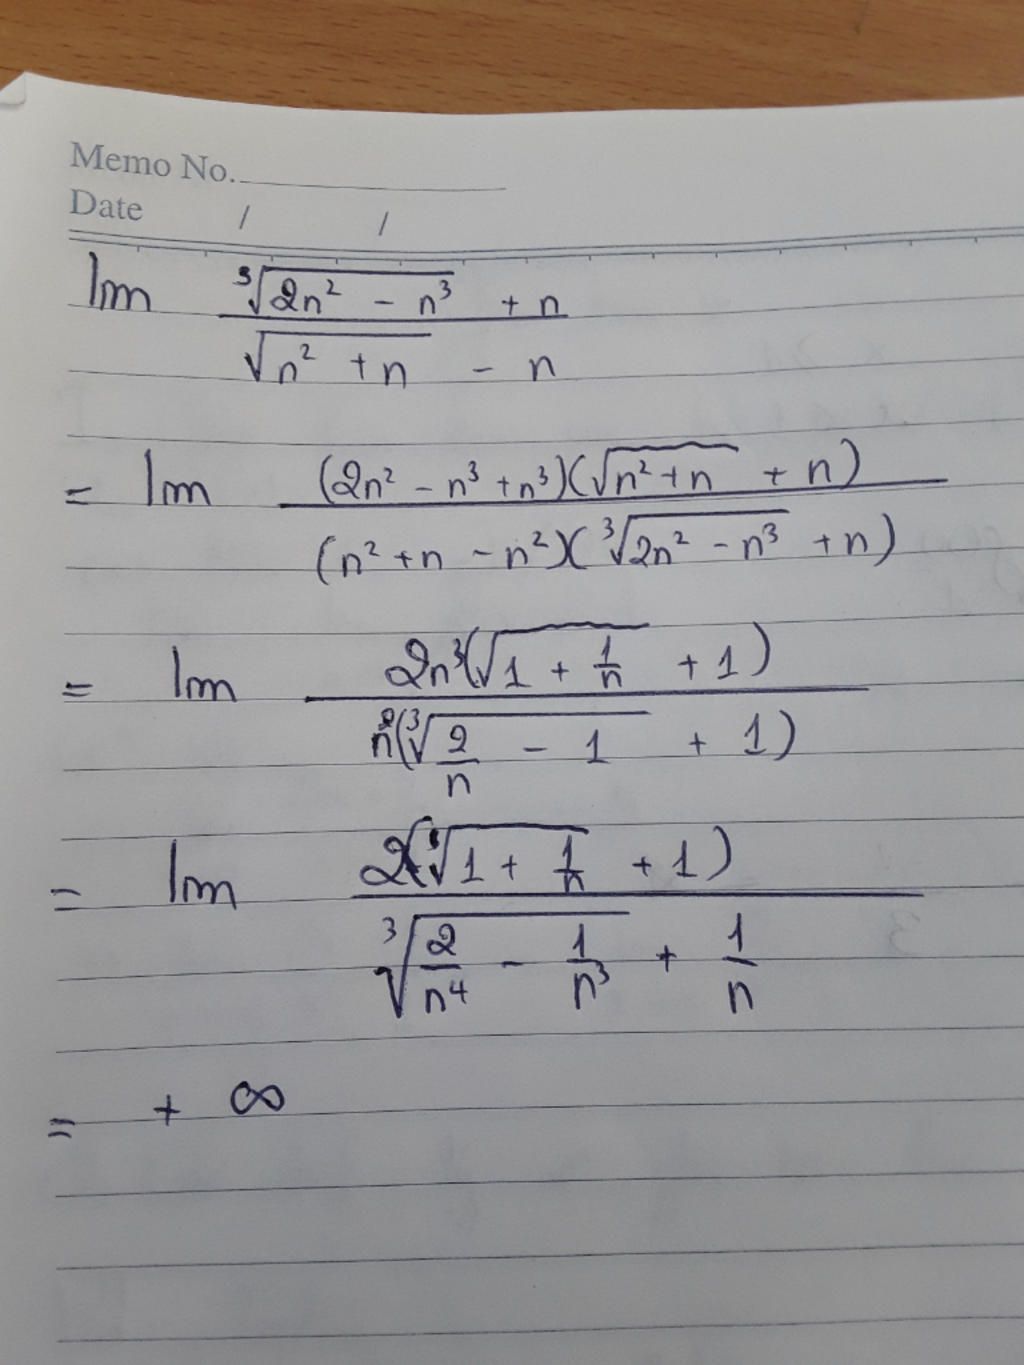 Memo No.
Date / /
lim (∛(2n² - n³) + n) / (√(n² + n) - n)
= lim ((2n² - n³ + n³)(√(n² + n) + n)) / ((n² + n - n²)(∛(2n² - n³) + n))
= lim (2n³(√(1 + 1/n) + 1)) / (n²(∛(2/n - 1) + 1))
= lim (2(√(1 + 1/n) + 1)) / (∛(2/n⁴ - 1/n³) + 1/n)
= + ∞